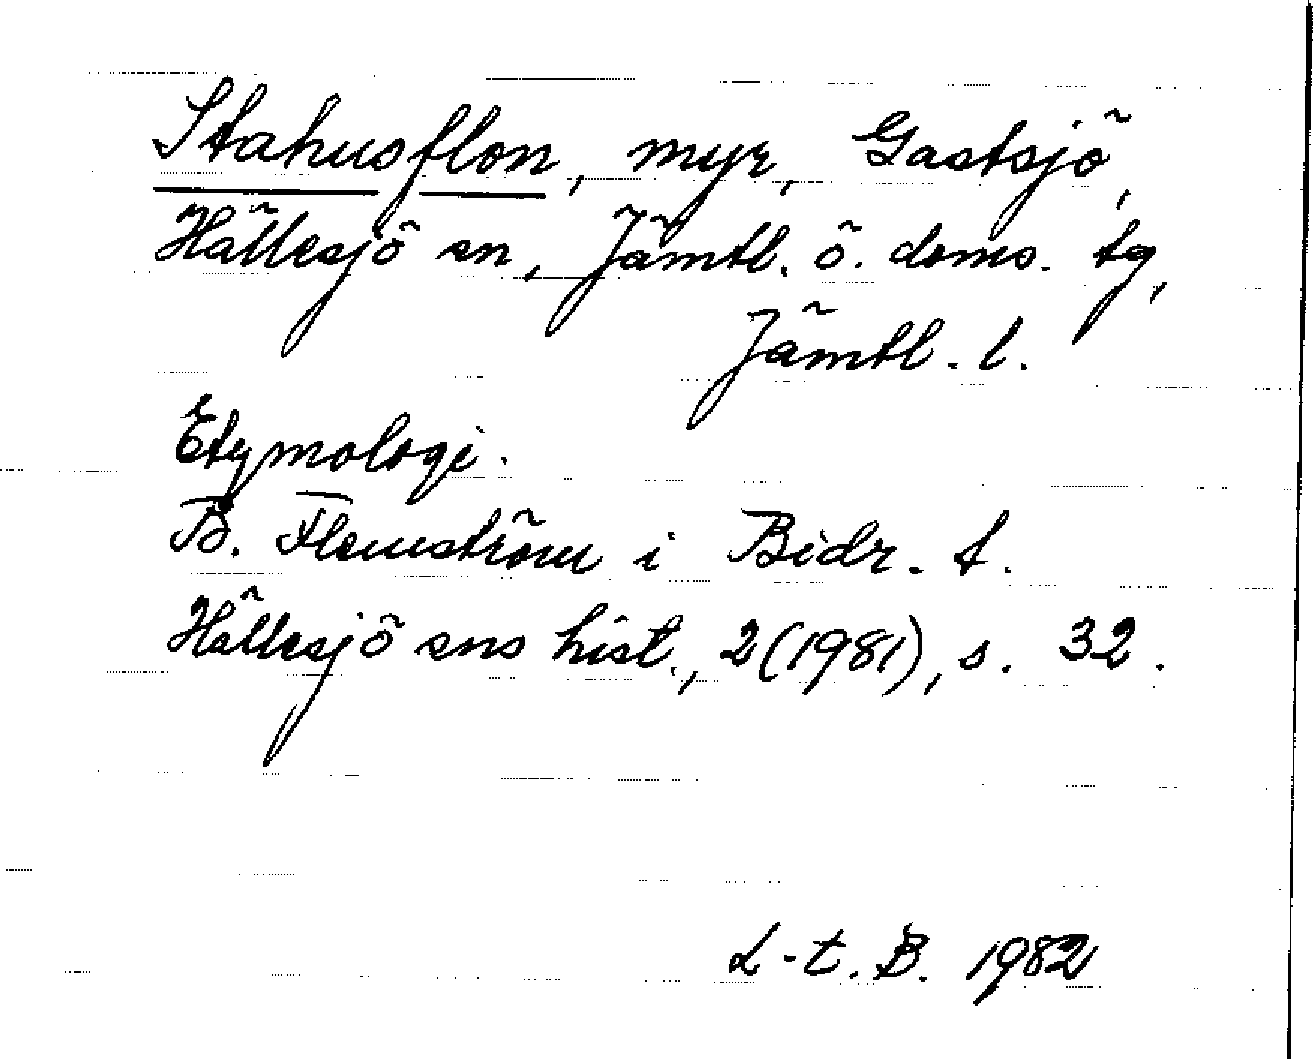 Stahusflon, myr, Gastsjö,
Hällesjö sn, Jämtl. ö. doms. tg,
Jämtl. l.
Etymologi.
B. Flemström i Bidr. t.
Hällesjö sns hist., 2(1981), s. 32.
L-t. B. 1982